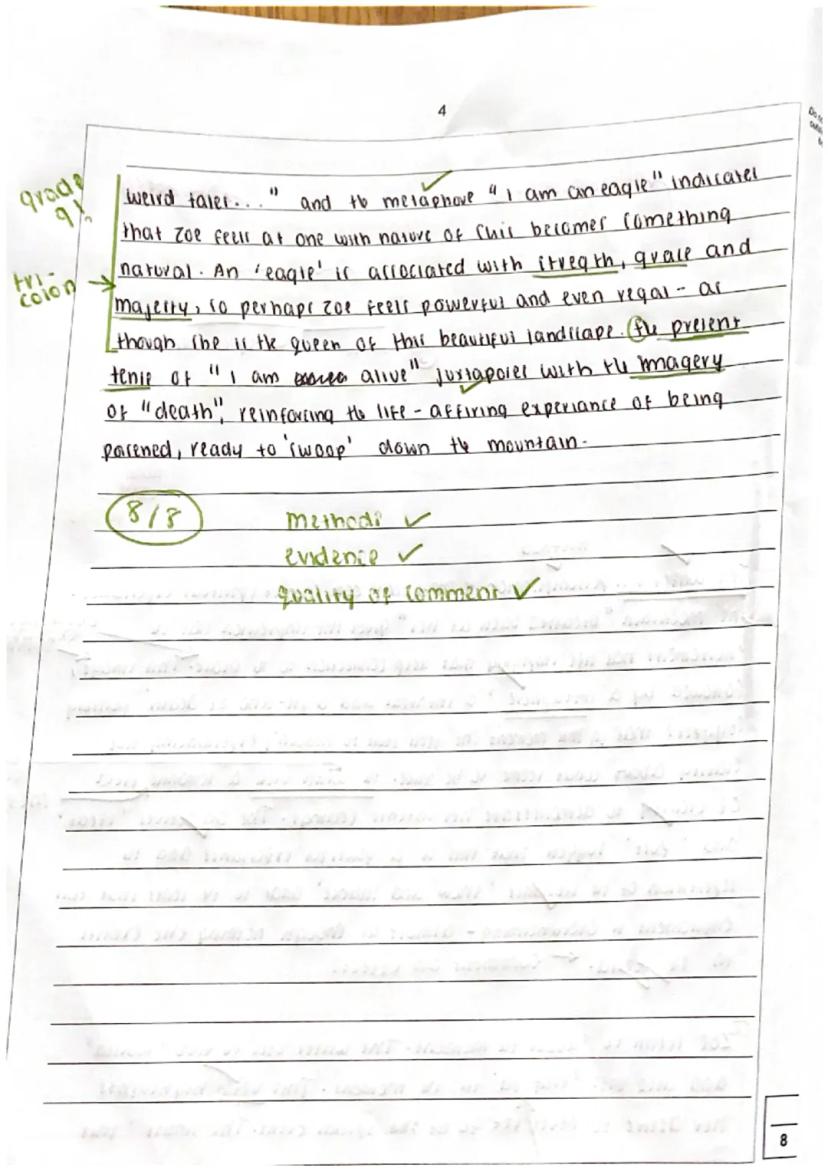 4
grade
9!
weird tales..." and the metaphore "I am an eagle" indicates
that Zoe feels at one with nature or even becomes something
natural. An 'eagle' is associated with stregth, grace and
tri-
colon →
majesty, so perhaps Zoe feels powerful and even regal - as
though she is the queen of this beautiful landscape. The present
tense of "I am alive" juxtaposes with the imagery
of "death", reinforcing the life-affiring experiance of being
poisened, ready to 'swoop' down the mountain.
8/8
methods ✓
evidence ✓
quality of comment ✓
8